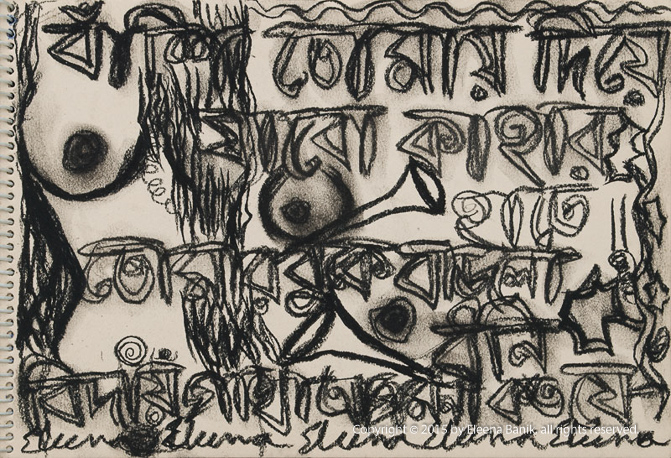 তোমায় দিয়ে
যাবো কাহার
হাতে ॥
তোমার বুকে বাজলো
ধ্বনি
বিদায়গাথা আগমনী কত যে
Copyright © 2015 by Eleena Banik, all rights reserved.
Eleena Eleena Eleena Eleena Eleena